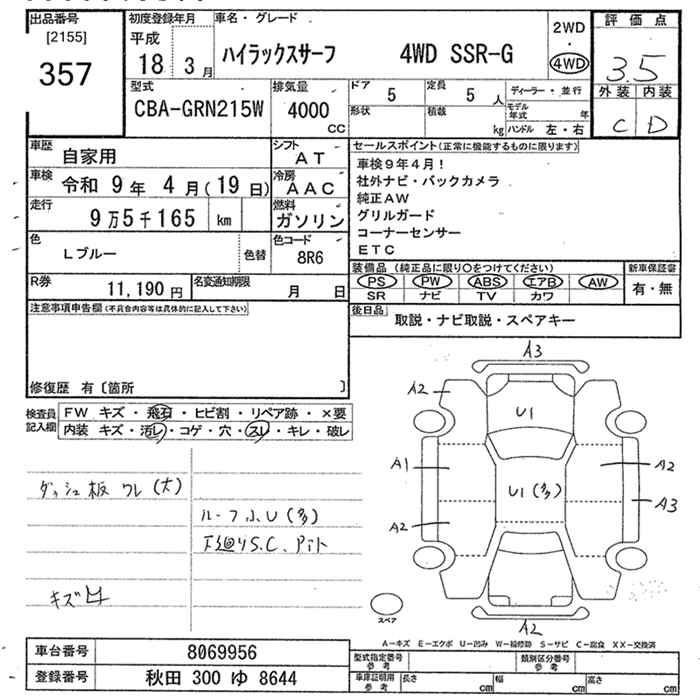 出品番号
[2155]
357
初度登録年月
平成
18 3月
車名・グレード
ハイラックスサーフ 4WD SSR-G
2WD
・
4WD
評価点
3.5
外装 内装
C D
型式
CBA-GRN215W
排気量
4000
CC
ドア 5
定員 5 人
形状
積載 kg
ディーラー・並行
モデル年式 年
ハンドル 左・右
車歴 自家用
シフト AT
車検 令和 9年 4月(19日)
冷房 AAC
走行 9万5千165 km
燃料 ガソリン
色 Lブルー 色替
色コード 8R6
R券 11,190円
名変通知期限 月 日
セールスポイント(正常に機能するものに限ります)
車検9年4月!
社外ナビ・バックカメラ
純正AW
グリルガード
コーナーセンサー
ETC
装備品 (純正品に限り○をつけてください)
PS PW ABS エアB AW
SR ナビ TV カワ
新車保証書
有・無
後日品 取説・ナビ取説・スペアキー
注意事項申告欄(不具合内容等は具体的に記入して下さい)
修復歴 有〔箇所 〕
検査員記入欄
FW キズ・飛石・ヒビ割・リペア跡・×要
内装 キズ・汚レ・コゲ・穴・スレ・キレ・破レ
ダッシュ板 ワレ(大)
ルーフふU(多)
下廻りS.C.
キズ
A3
A2
U1
A1
U1(多)
A2
A3
A2
A2
スペア
A-キズ E-エクボ U-凹み W-補修跡 S-サビ C-腐食 XX-交換済
車台番号 8069956
登録番号 秋田 300 ゆ 8644
型式指定番号参考
類別区分番号参考
車庫証明用参考
長さ cm 幅 cm 高さ cm